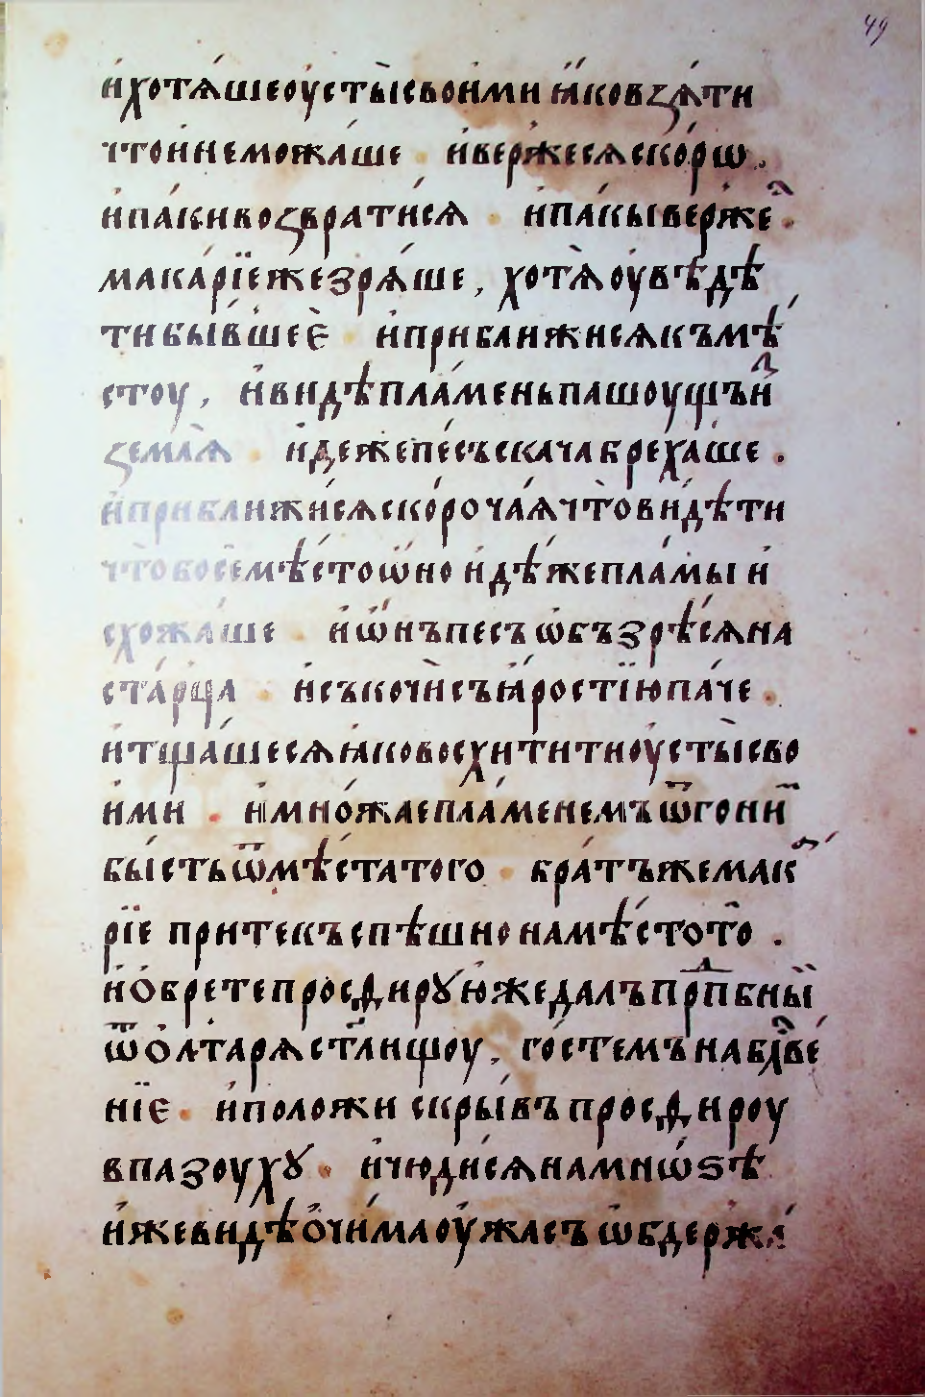 49
и҆хотѧ́шеоу҆сты̀свои́ми ꙗ҆́ковзѧ́ти
что̀и҆неможа́ше и҆ве́ржесѧскорѡ .
и҆па́кивозврати́сѧ . и҆па́кывержеⷭ҇ .
мака́рїежезрѧ́ше , хотѧ̀оу҆вѣдѣ́
тибы́вшеѐ и҆прибли́жисѧкъмѣ́
стоу , и҆ви́дѣпла́меньпашоущъи҆ⷥ
землѧ̀ и҆дежепе́съскачабреха́ше .
и҆прибли́жи́сѧскорочаѧчто̀ви́дѣти
что̀босѐмѣ́стоѡ҆́но и҆дѣ́жепла́мы и҆
схожа́ше . и҆ѡ҆́нъпесъ ѡ҆бъзрѣ́сѧна
ста́рца . и҆съкочѝсъꙗ҆́ростїюпа́че .
и҆тща́шесѧꙗ҆́ковосхититиоу҆сты̀сво
и́ми . и҆мно́жаепла́менемъѿгони́ⷨ
бы́стьѿмѣ́статого . бра́тъжемакⷶ
рїе притекъспѣ́шнонамѣ́стото̀ .
и҆о҆брете просѳирꙋю҆́жедалъпрⷣпбны́й
ѿо҆лтарѧст҃лищоу , го́стемънабл҃ве
нїе . и҆положи скры́въпросѳироу
впазоухꙋ . и҆чюди́сѧнамнѡ́ѕѣ
и҆́жеви́дѣо҆чи́маоу҆́жасъ ѡ҆бдержа́